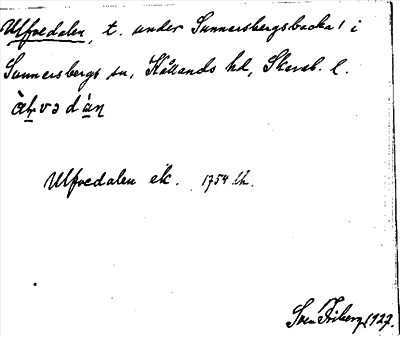 Ulfvedalen, t. under Sunnersbergsbacka! i
Sunnersbergs sn, Kållands hd, Skarab. l.
Ulfvedalen ek. 1754 lh.
Sven Friberg 1927.